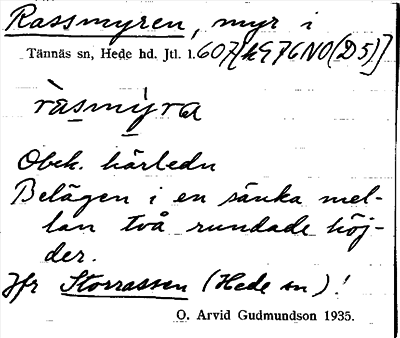 Rassmyren, myr i
Tännäs sn, Hede hd. Jtl. l. 607/[k976NO(D5)]
ràsmỳra
Obek. härledn
Belägen i en sänka mel-
lan två rundade höj-
der.
Jfr Storrassen (Hede sn)!
O. Arvid Gudmundson 1935.